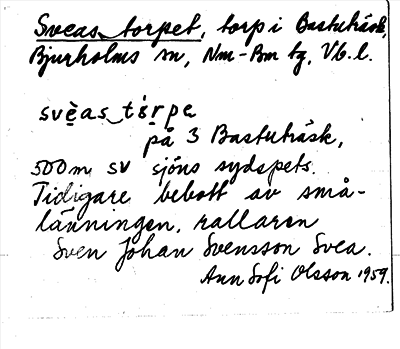 Sveas_torpet, torp i Bastuträsk,
Bjurholms sn, Nm-Bm tg, Vb. l.
svèas_tórpe
på 3 Bastuträsk,
500 m sv sjöns sydspets.
Tidigare bebott av små-
länningen, rallaren
Sven Johan Svensson Svea.
Ann Sofi Olsson 1959.